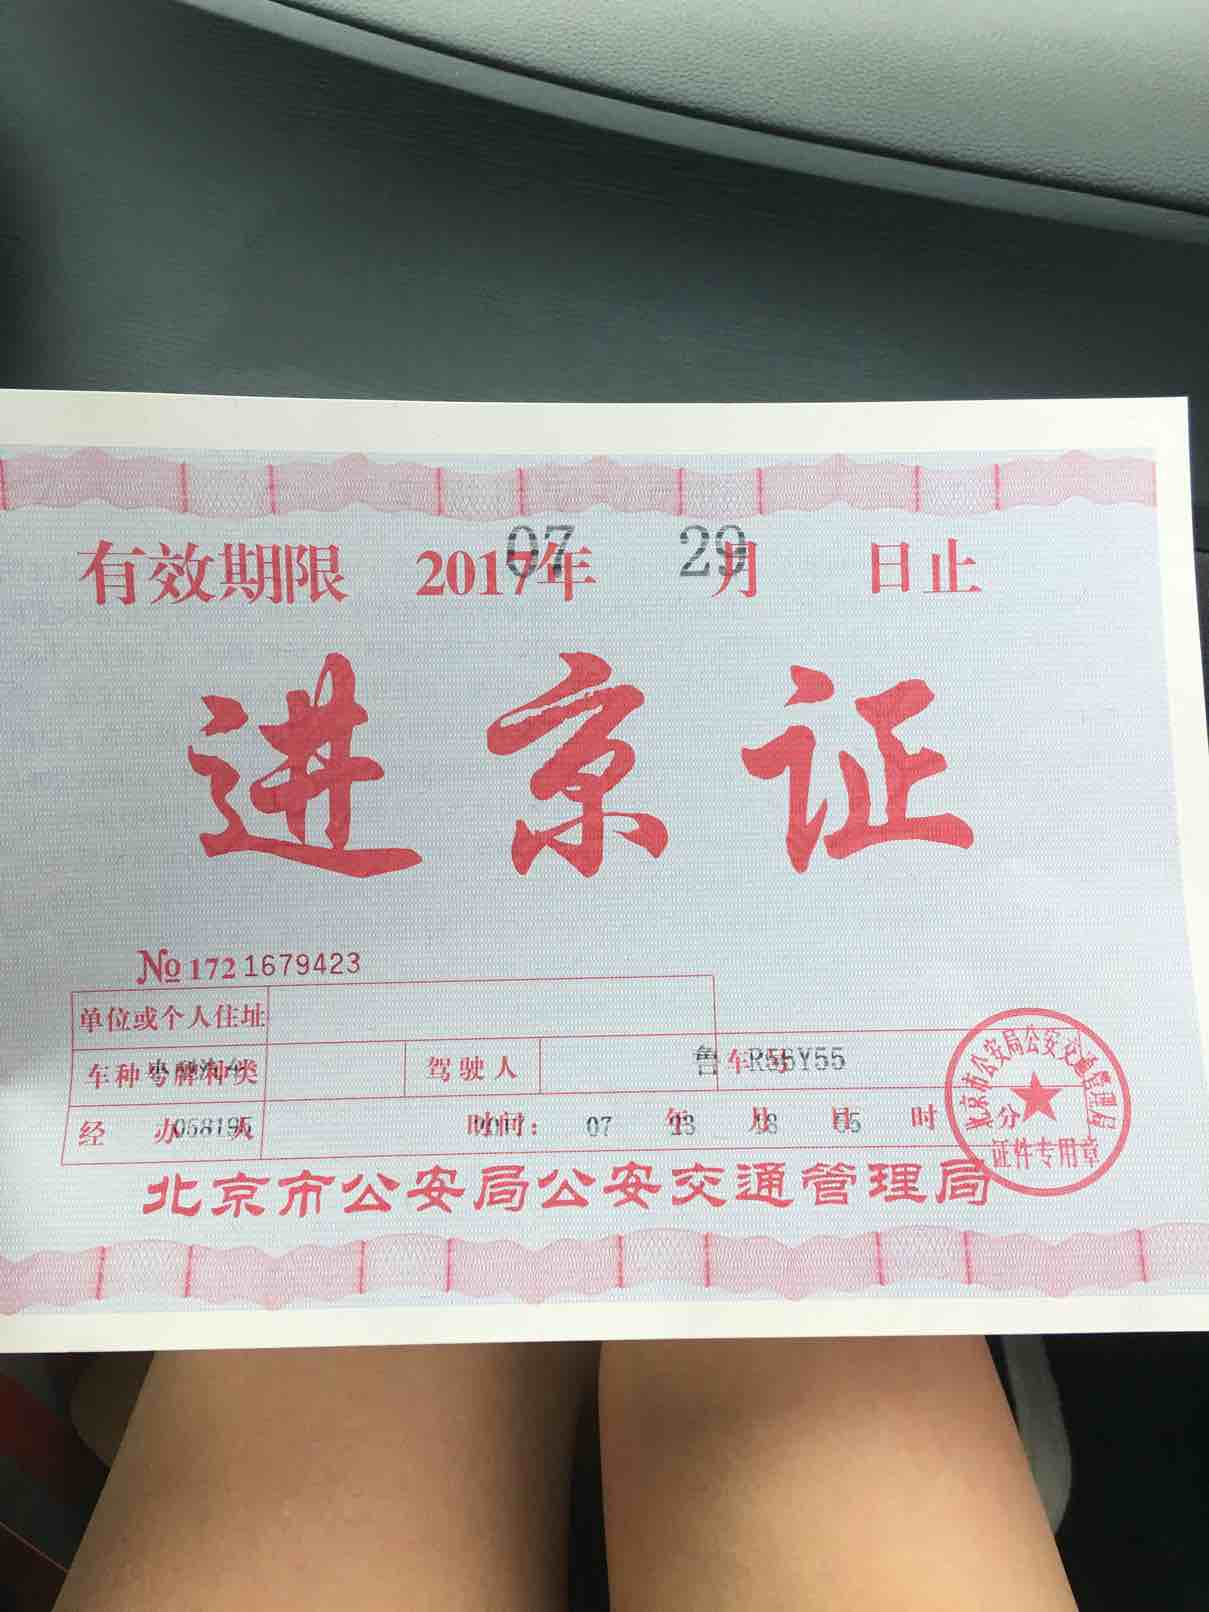 有效期限 2017年 07 月 29 日止
进京证
№ 172 1679423
单位或个人住址
车种号牌种类 驾驶人 车号 鲁R55Y55
经办人 058195 时间: 2017 年 07 月 23 日 18 时 05 分
北京市公安局公安交通管理局
北京市公安局公安交通管理局
证件专用章